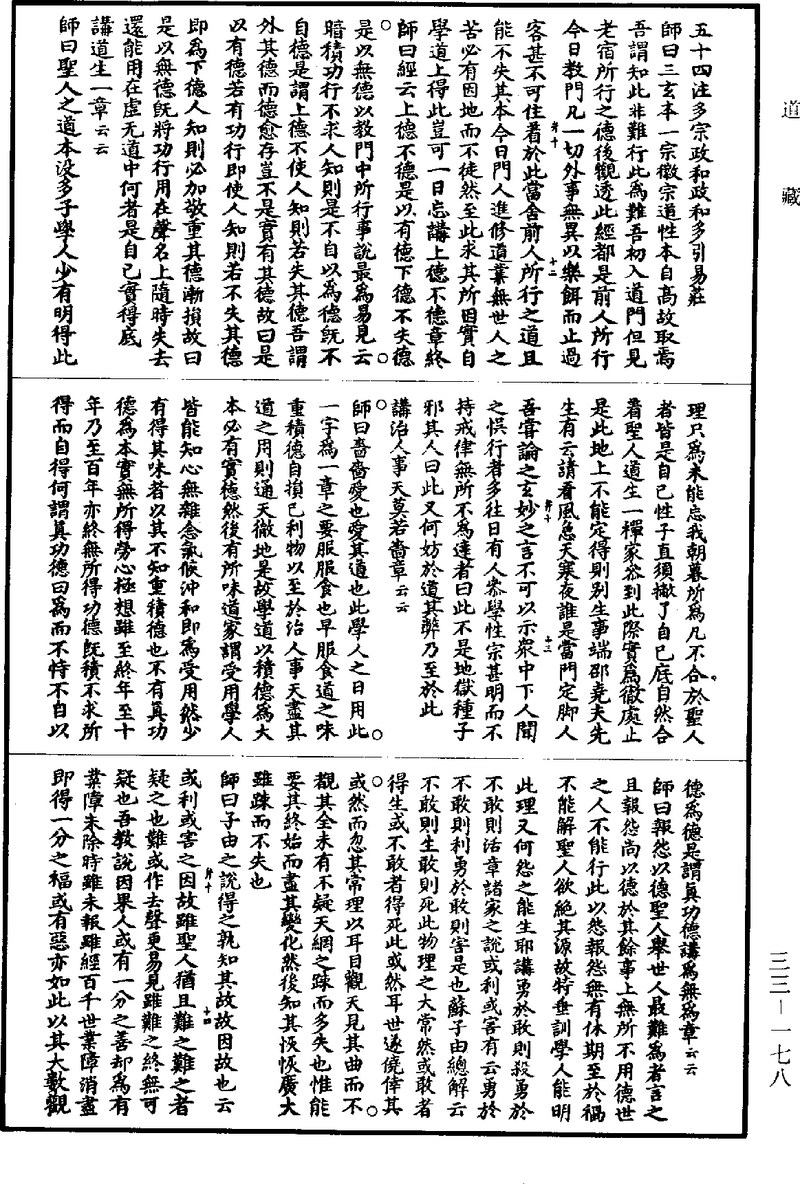 道藏
五十四注多宗政和政和多引易莊
師曰三玄本一宗徽宗道性本自高故取焉
吾謂知此非難行此為難吾初入道門但見
老宿所行之德後觀透此經都是前人所行
今日教門凡一切外事無異以樂餌而止過
客甚不可住着於此當舍前人所行之道且
能不失其本今日門人進修道業無世人之
苦必有因地而不徒然至此求其所因實自
學道上得此豈可一日忘講上德不德章終
師曰經云上德不德是以有德下德不失德
是以無德以教門中所行事說最為易見云
暗積功行不求人知則是不自以為德旣不
自德是謂上德不使人知則若失其德吾謂
外其德而德愈存豈不是實有其德故曰是
以有德若有功行即使人知則若不失其德
即為下德人知則必加敬重其德漸損故曰
是以無德旣將功行用在聲名上隨時失去
還能用在虛无道中何者是自己實得底
講道生一章云云
師曰聖人之道本没多子學人少有明得此
理只為未能忘我朝暮所為凡不合於聖人
者皆是自己性子直須撇了自己底自然合
着聖人道生一禪家叅到此際實為徹處止
是此地上不能定得則别生事端邵堯夫先
生有云請看風急天寒夜誰是當門定脚人
吾嘗論之玄妙之言不可以示衆中下人聞
之悞行者多往日有人叅學性宗甚明而不
持戒律無所不為達者曰此不是地獄種子
邪其人曰此又何妨於道其弊乃至於此
講治人事天莫若嗇章云云
師曰嗇嗇愛也愛其道也此學人之日用此
一字為一章之要服服食也早服食道之味
重積德自損已利物以至於治人事天盡其
道之用則通天徹地是故學道以積德為大
本必有實德然後有所味道家謂受用學人
皆能知心無雜念氣候沖和即為受用然少
有得其味者以其不知重積德也不有真功
德為本實無所得勞心極想雖至終年至十
年乃至百年亦終無所得功德旣積不求所
得而自得何謂真功德曰為而不恃不自以
德為德是謂真功德講為無為章云云
師曰報怨以德聖人舉世人最難為者言之
且報怨尚以德於其餘事上無所不用德世
之人不能行此以怨報怨無有休期至於禍
不能解聖人欲絶其源故特垂訓學人能明
此理又何怨之能生耶講勇於敢則殺勇於
不敢則活章諸家之說或利或害有云勇於
不敢則利勇於敢則害是也蘇子由總解云
不敢則生敢則死此物理之大常然或敢者
得生或不敢者得死此或然耳世遂僥倖其
或然而忽其常理以耳目觀天見其曲而不
覩其全未有不疑天網之踈而多失也惟能
要其終始而盡其變化然後知其恢恢廣大
雖踈而不失也
師曰子由之說得之孰知其故故因故也云
或利或害之因故雖聖人猶且難之難之者
疑之也難或作去聲更易見雖難之終無可
疑也吾教說因果人或有一分之善却為有
業障未除時雖未報雖經百千世業障消盡
即得一分之福或有惡亦如此以其大數觀
三三—一七八